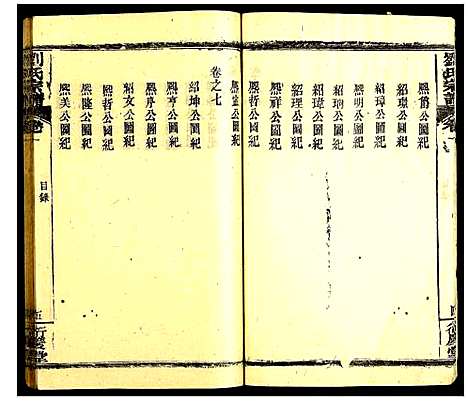 劉氏宗譜
熙爵公圖紀
紹環公圖紀
紹璋公圖紀
熙明公圖紀
紹珦公圖紀
紹瑋公圖紀
熙祥公圖紀
紹理公圖紀
熙哲公圖紀
熙金公圖紀
卷之七
紹坤公圖紀
熙亨公圖紀
熙序公圖紀
紹友公圖紀
熙哲公圖紀
熙隆公圖紀
熙美公圖紀
劉氏宗譜
目錄
衍慶堂